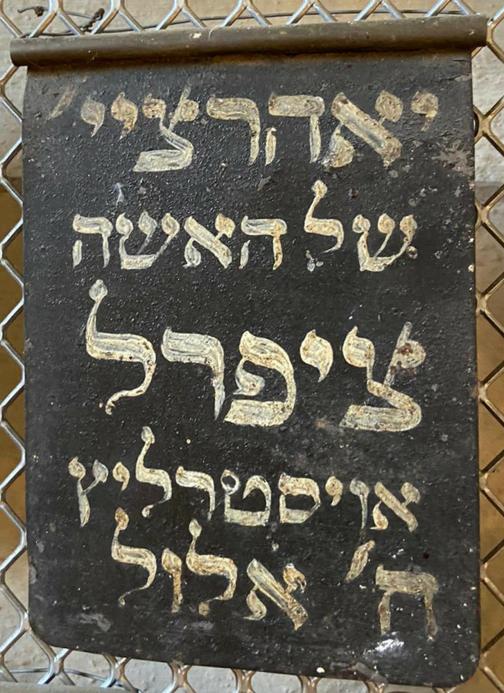 יאהרציי'
של האשה
ציפרל
אויסטרליץ
ה' אלול